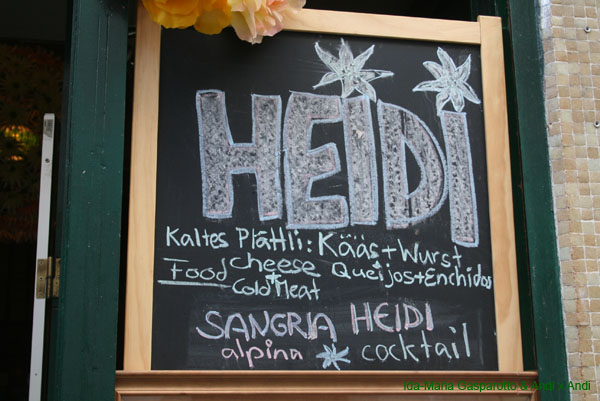 HEIDI
Kaltes Plättli: Kääs + Wurst
Food cheese + Cold Meat Queijos + Enchidos
SANGRIA HEIDI
alpina cocktail
Ida-Maria Gasparotto & Andi x Andi